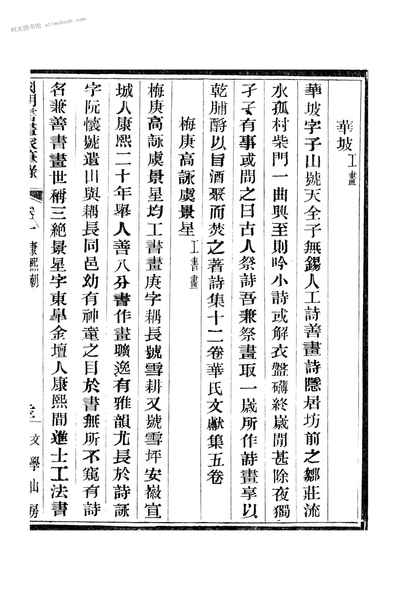 華坡工畫
華坡字子山號天全子無錫人工詩善畫詩隱居坊前之鄒莊流
水孤村柴門一曲興至則吟小詩或解衣盤礴終歲閒甚除夜獨
孑孑有事或問之曰古人祭詩吾兼祭畫取一歲所作詩畫享以
乾脯酹以旨酒聚而焚之著詩集十二卷華氏文獻集五卷
梅庚高詠虞景星工書畫
梅庚高詠虞景星均工書畫庚字耦長號雪耕又號雪坪安徽宣
城人康熙二十年舉人善八分書作畫曠逸有雅韻尤長於詩詠
字阮懷號遺山與耦長同邑幼有神童之目於書無所不窺有詩
名兼善書畫世稱三絕景星字東皋金壇人康熙間進士工法書
卷一 康熙朝
文學山房